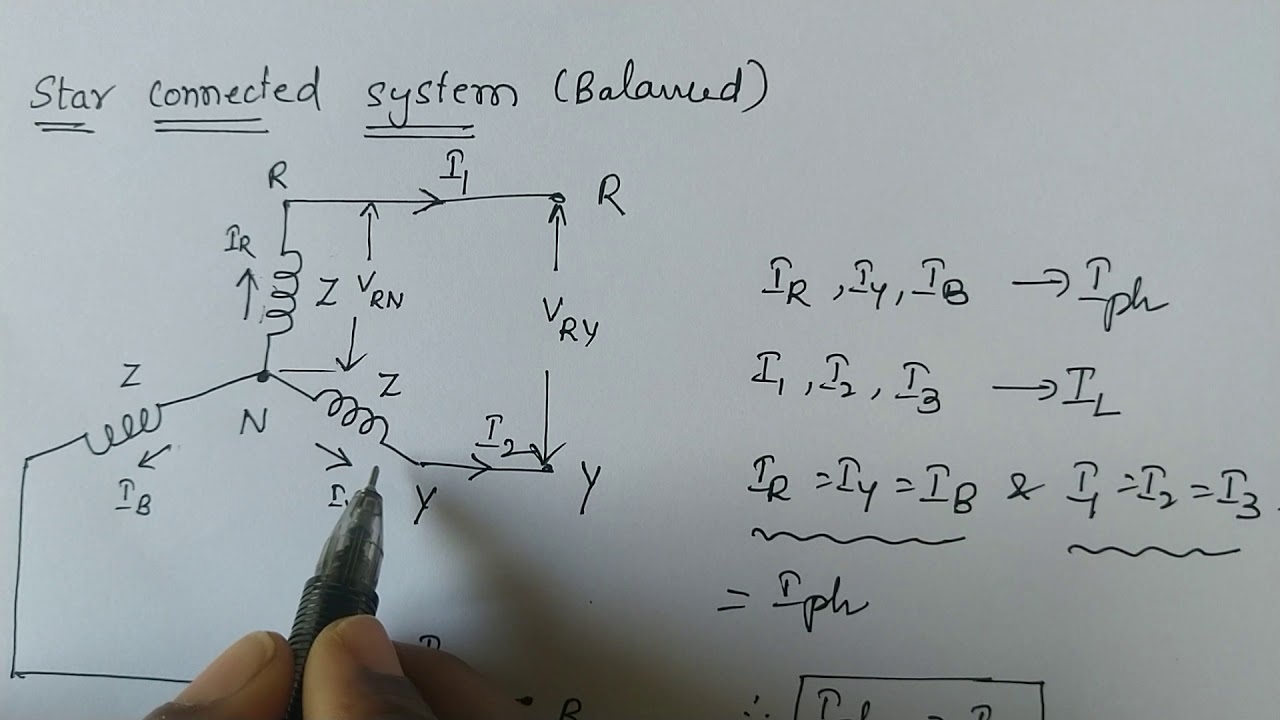 Star connected system (Balanced)
R
I1
R
IR
Z
VRN
VRY
Z
Z
N
I2
IB
Y
Y
IR, IY, IB → Iph
I1, I2, I3 → IL
IR = IY = IB & I1 = I2 = I3
= Iph
B
∴